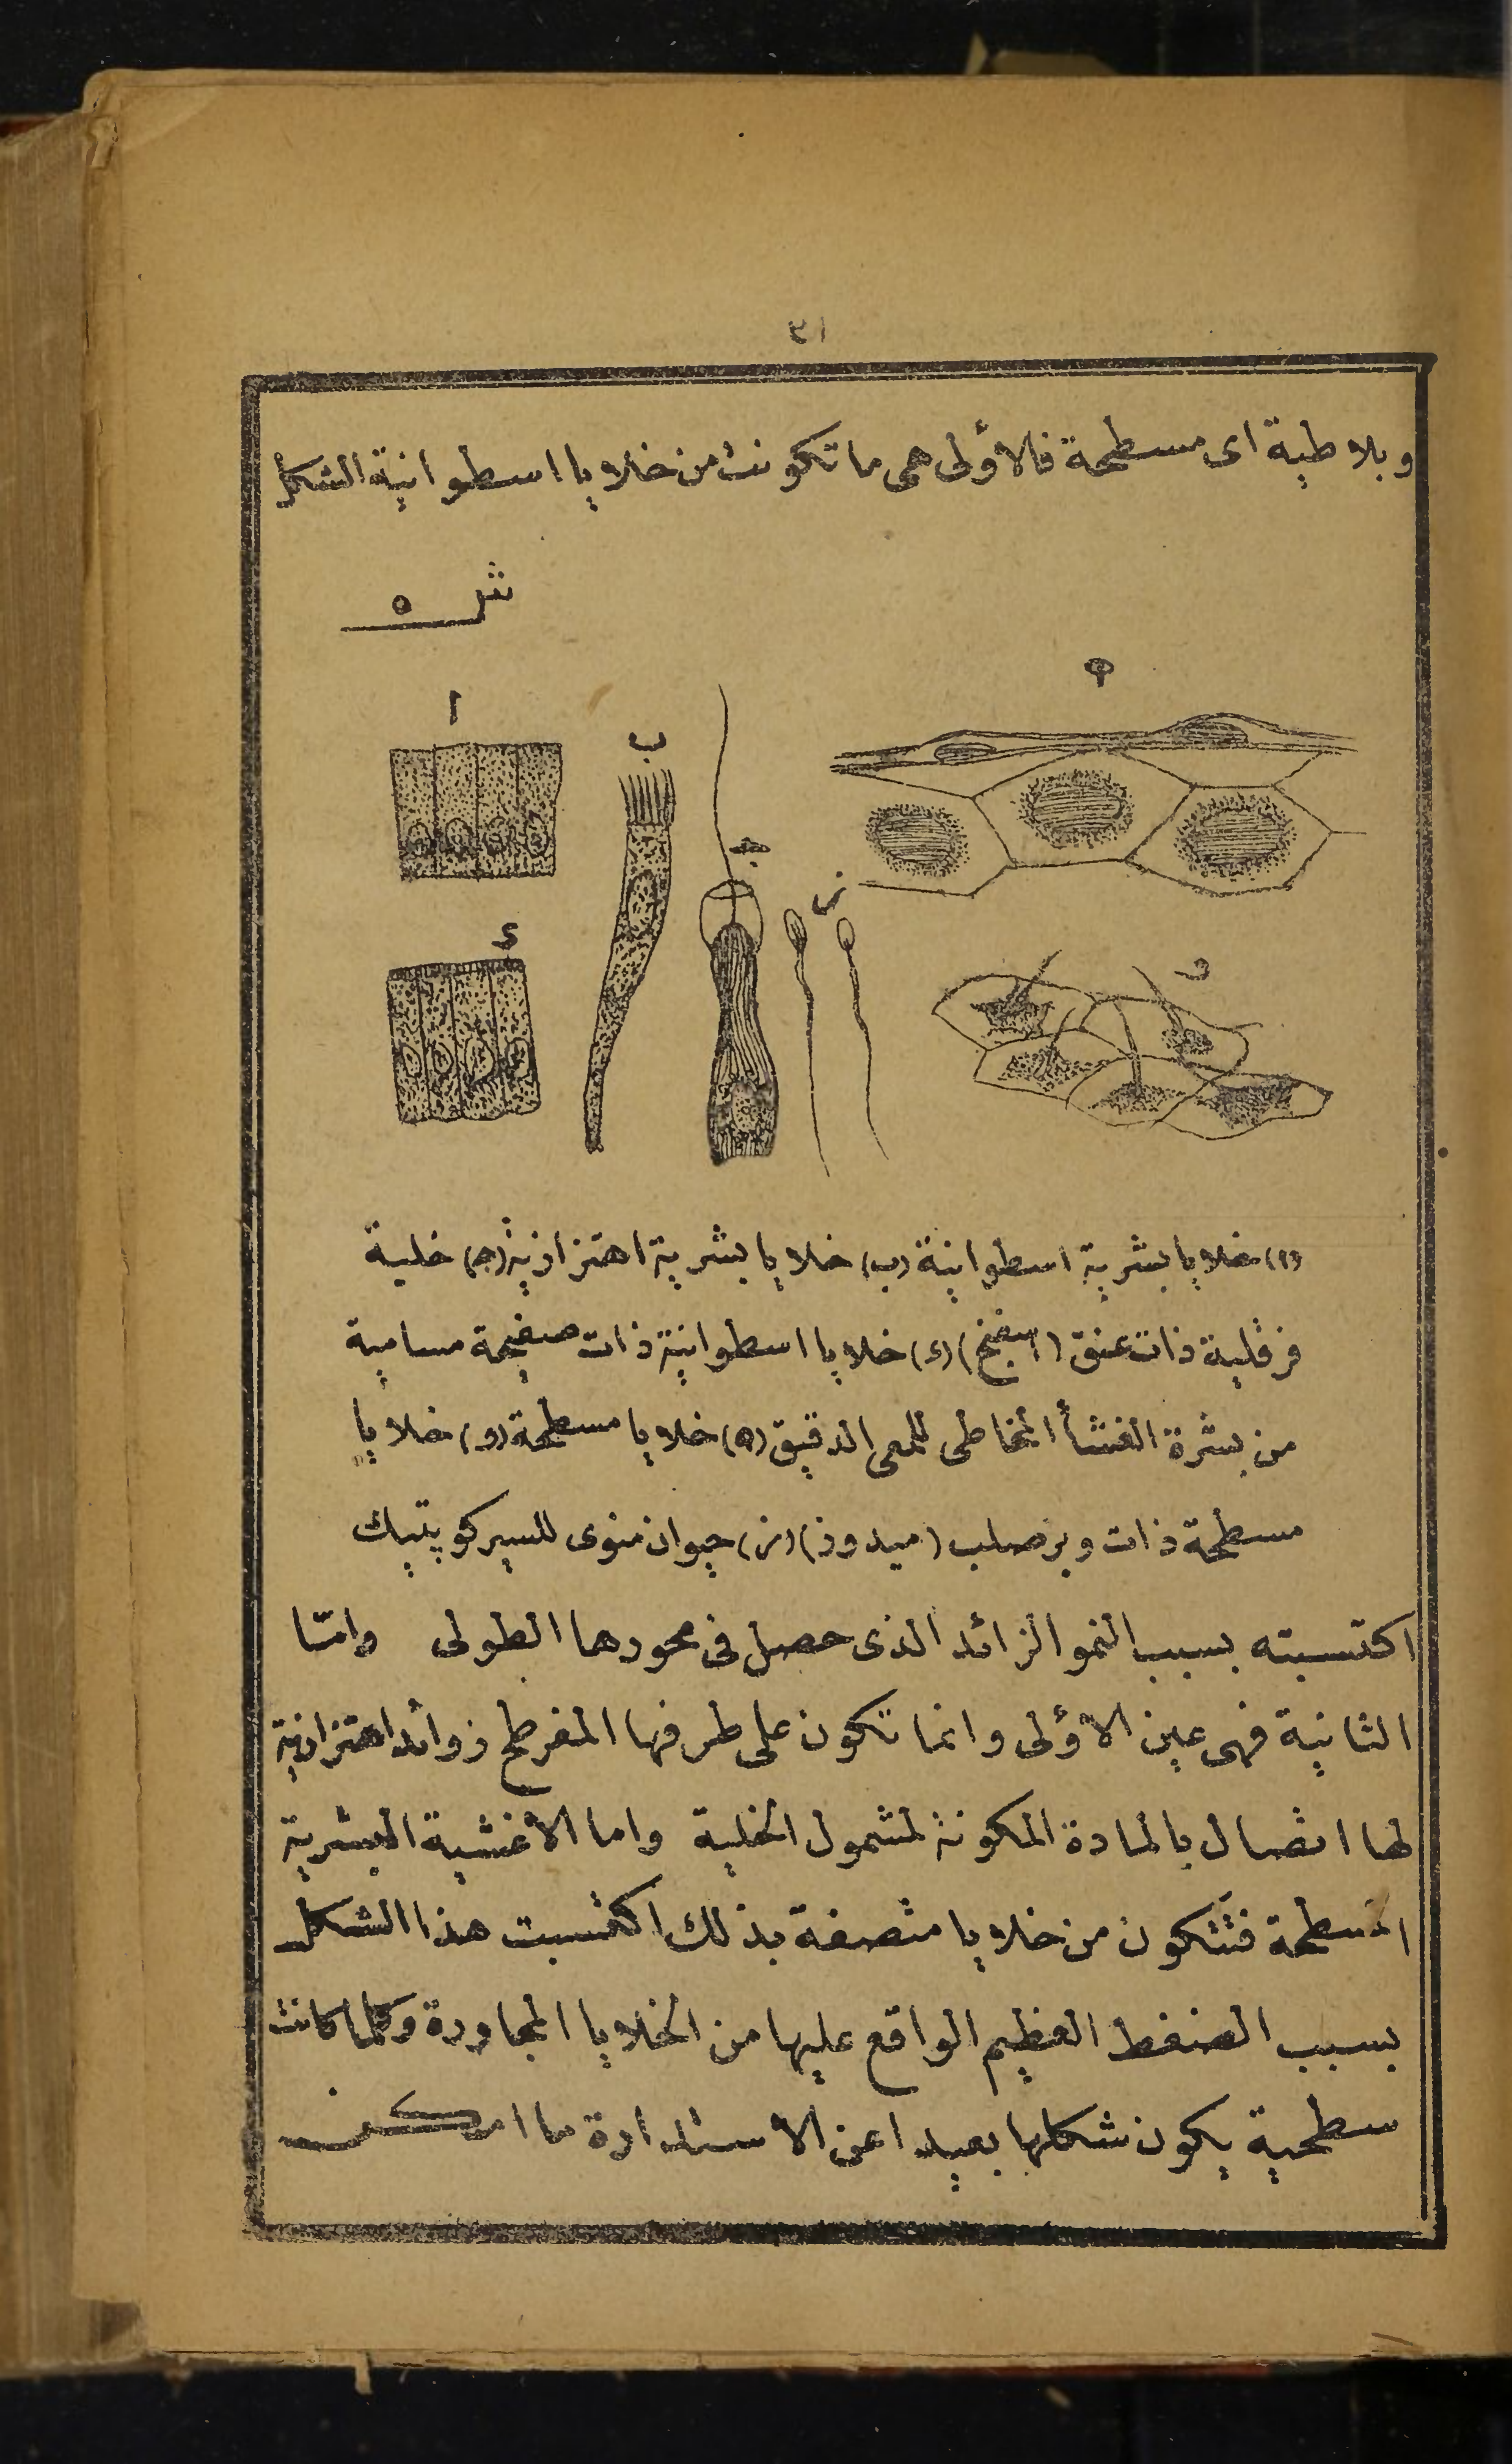 ٣١
وبلاطية اى مسطحة فالاولى هى ما تكونت من خلايا اسطوانية الشكل
شكل ٥
ا
ب
ه
ج
ز
د
و
(ا) خلايا بشرية اسطوانية (ب) خلايا بشرية اهتزازية (ج) خلية
فرقلية ذات عنق (اسفنج) (د) خلايا اسطوانية ذات صفيحة مسامية
من بشرة الغشأ المخاطى للمعى الدقيق (ه) خلايا مسطحة (و) خلايا
مسطحة ذات وبر صلب (ميدوذ) (ز) حيوان منوى للسيركوپتيك
اكتسبته بسبب النمو الزائد الذى حصل فى محورها الطولى وامّا
الثانية فهى عين الاولى وانما تكون على طرفها المفرطح زوائد اهتزازية
لها اتصال بالمادة المكونة لمشمول الخلية واما الاغشية البشرية
المسطحة فتتكون من خلايا متصفة بذلك اكتسبت هذا الشكل
بسبب الضغط العظيم الواقع عليها من الخلايا المجاورة وكلما كانت
سطحية يكون شكلها بعيدا عن الاستدارة ما امكن